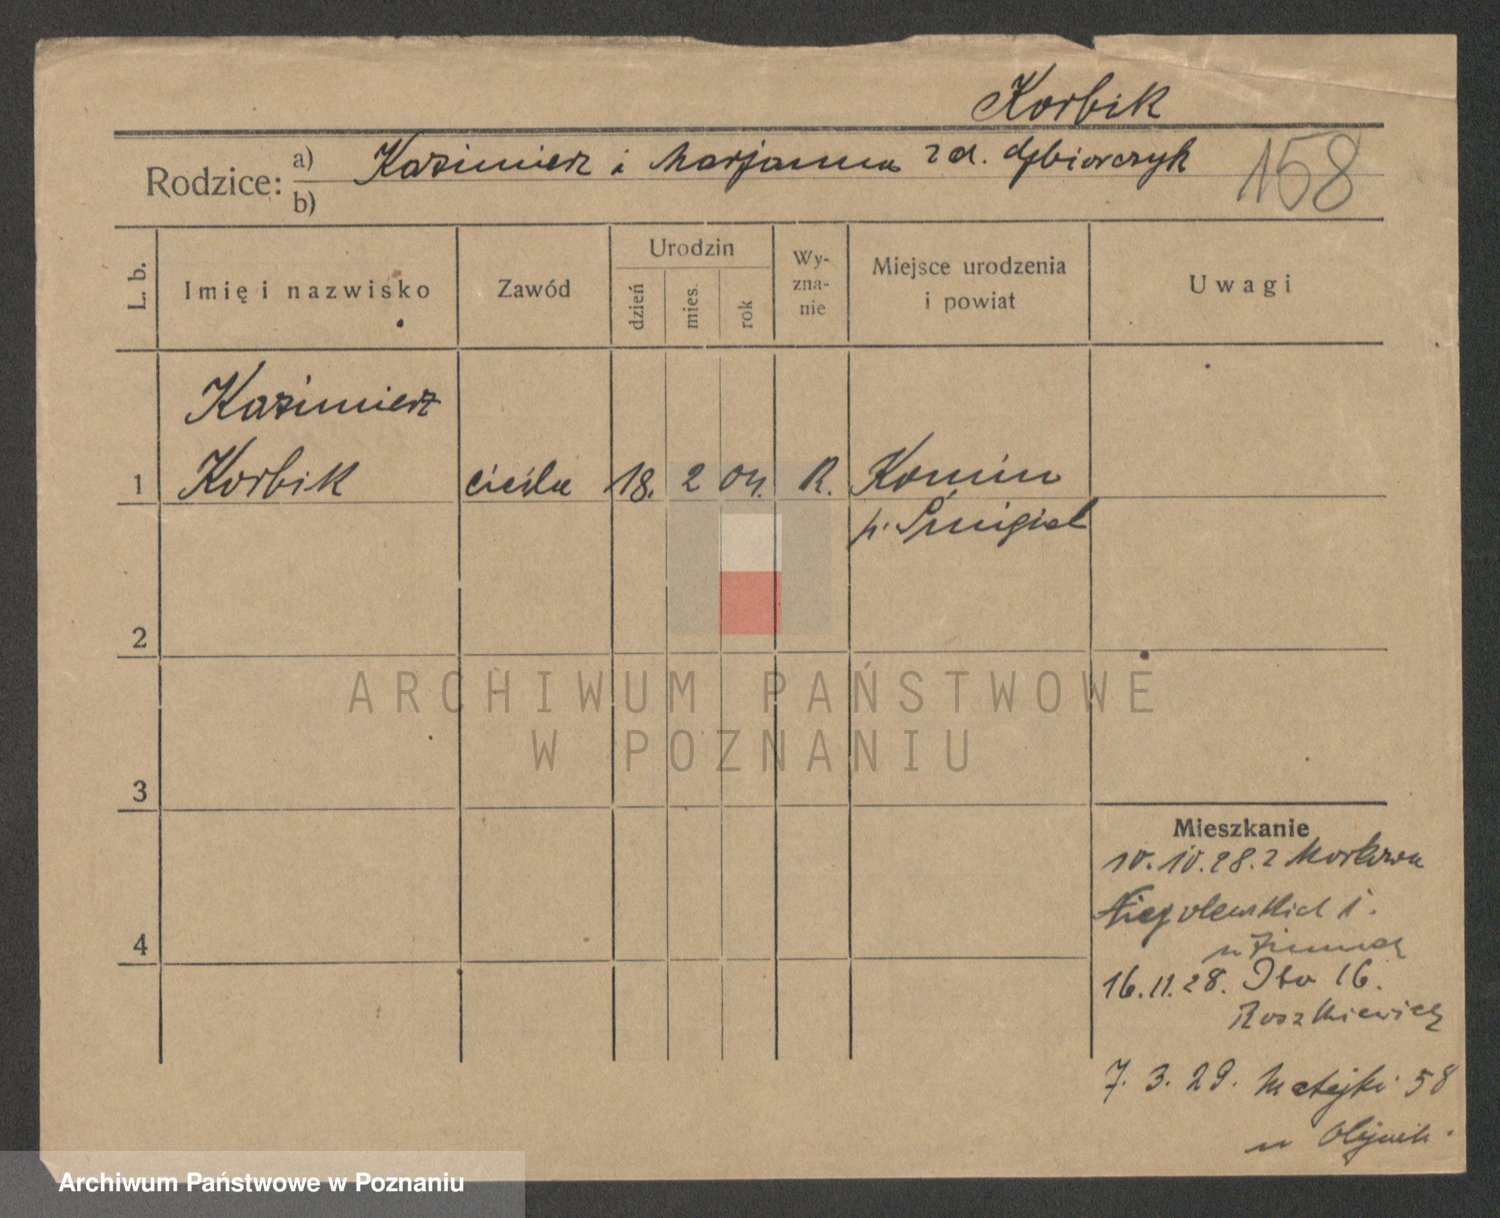 Korbik
Rodzice: a) Kazimierz i Marjanna z d.
b)
158
L. b.
Imię i nazwisko
Zawód
Urodzin
dzień
mies.
rok
Wy-
zna-
nie
Miejsce urodzenia
i powiat
Uwagi
Kazimierz
1 Korbik cieśla 18. 2 04. R. Konin
p. Śmigiel
2
3
4
ARCHIWUM PAŃSTWOWE
W POZNANIU
Mieszkanie
10.10.28. z
Niegolewskich 1.
16.11.28. 16.
Roszkiewicz
7. 3. 29. Matejki 58
u Olijnik.
Archiwum Państwowe w Poznaniu